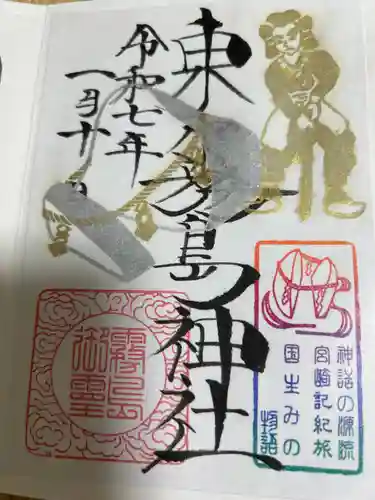 東霧島神社
令和七年
一月十日
神話の源流
宮崎記紀旅
国生みの
物語
霧島